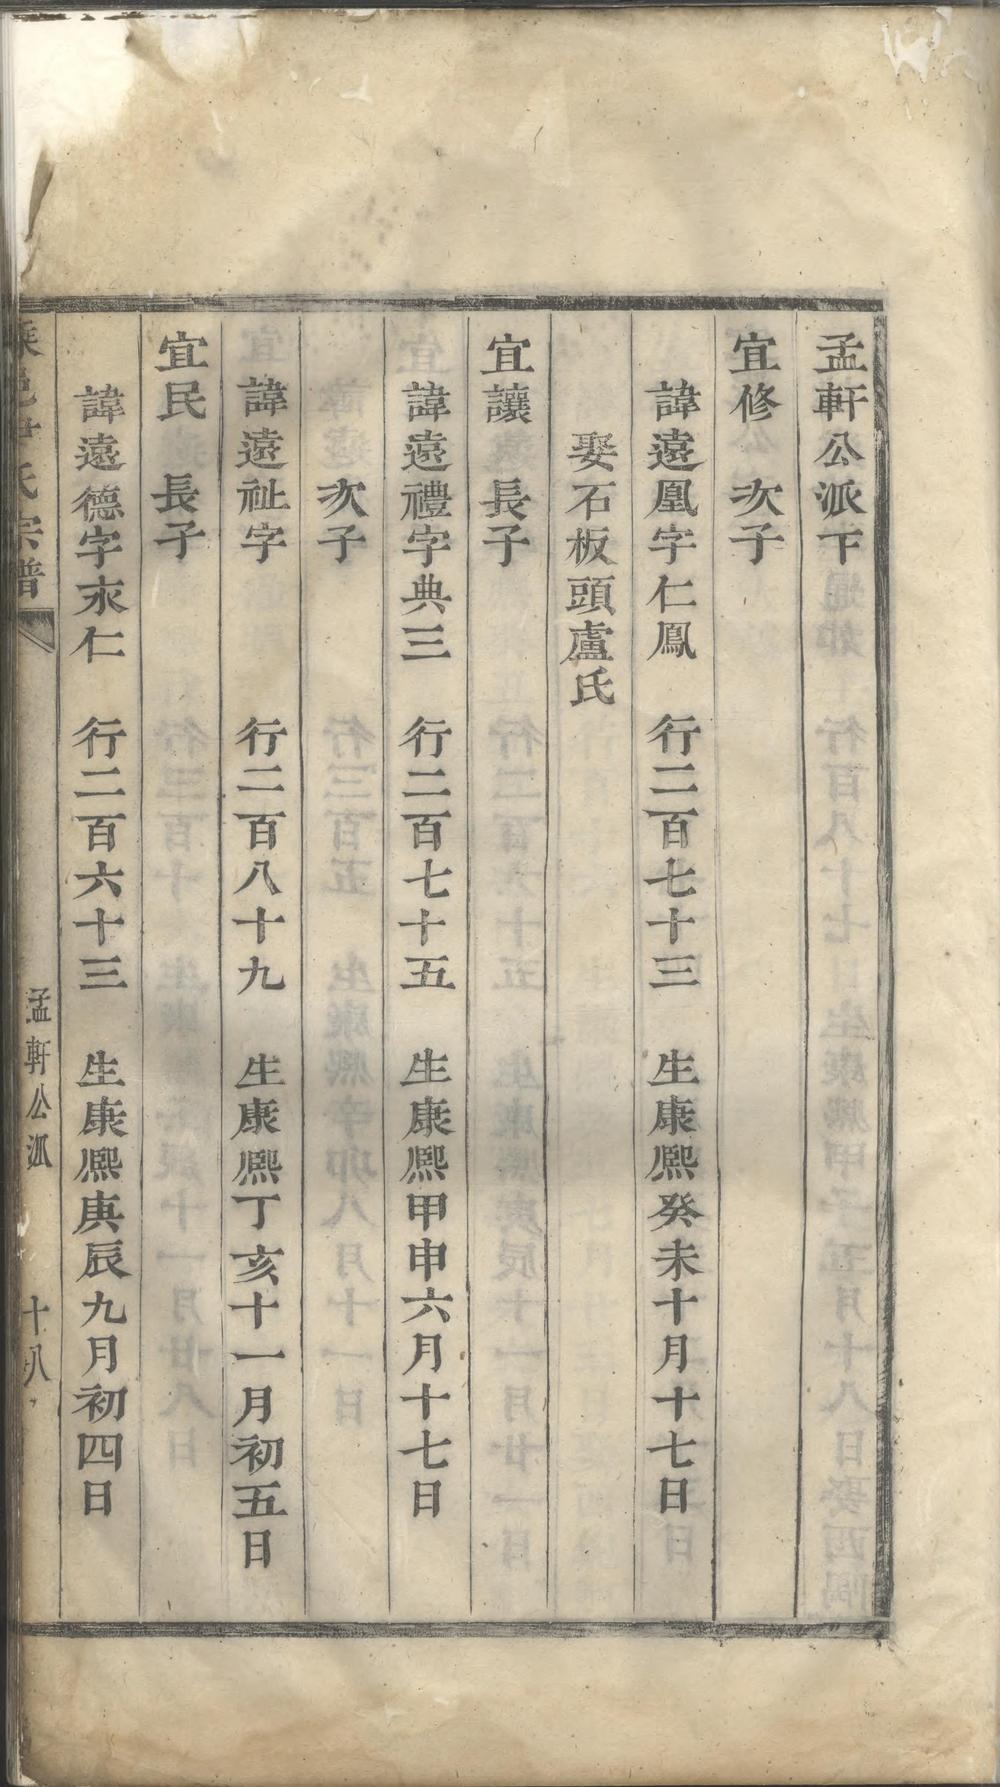 孟軒公派下
宜修　次子
諱遠凰字仁鳳　行二百七十三　生康熙癸未十月十七日
娶石板頭盧氏
宜讓　長子
諱遠禮字典三　行二百七十五　生康熙甲申六月十七日
次子
諱遠祉字　行二百八十九　生康熙丁亥十一月初五日
宜民　長子
諱遠德字永仁　行二百六十三　生康熙庚辰九月初四日
氏宗譜　孟軒公派　十八